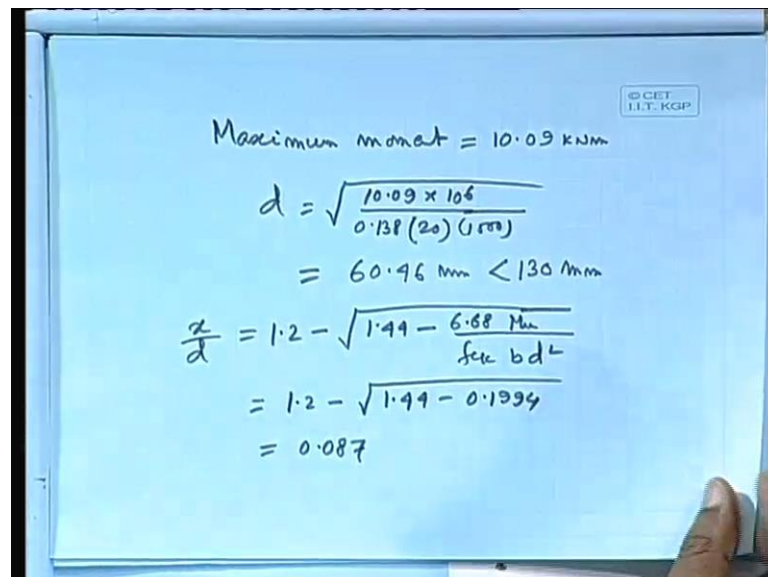 © CET
I.I.T. KGP
Maximum moment = 10.09 kNm
d = √(10.09 × 10⁶ / 0.138 (20) (1000))
= 60.46 mm < 130 mm
x/d = 1.2 - √(1.44 - 6.68 Mu / fck bd²)
= 1.2 - √(1.44 - 0.1994)
= 0.087